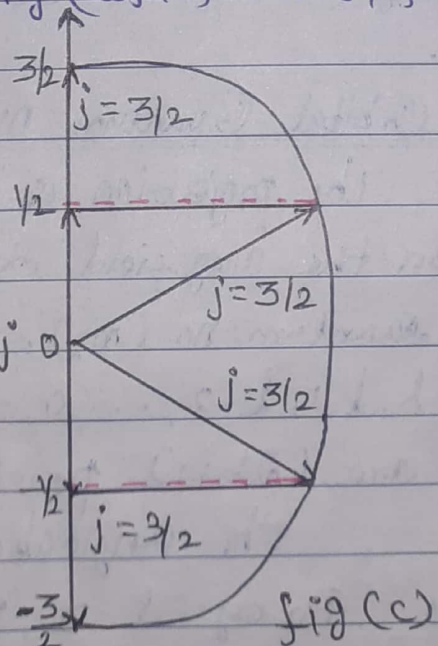 3/2
j = 3/2
1/2
j = 3/2
j 0
j = 3/2
-1/2
j = 3/2
-3/2
fig (c)